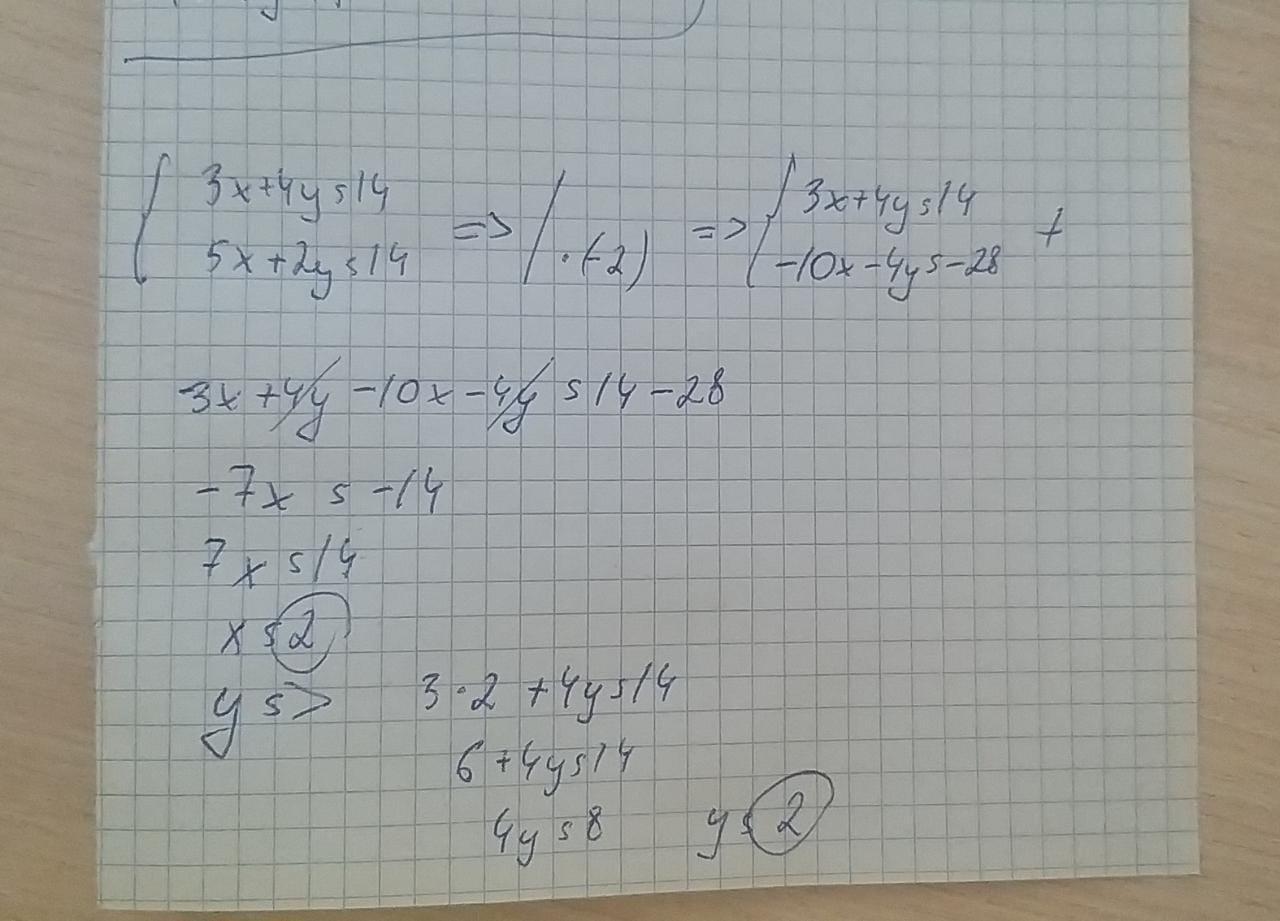 { 3x+4y=14 => | => { 3x+4y=14 +
5x+2y=14 ·(-2) -10x-4y=-28
3x+4y-10x-4y=14-28
-7x=-14
7x=14
x=2
y => 3·2+4y=14
6+4y=14
4y=8 y=2